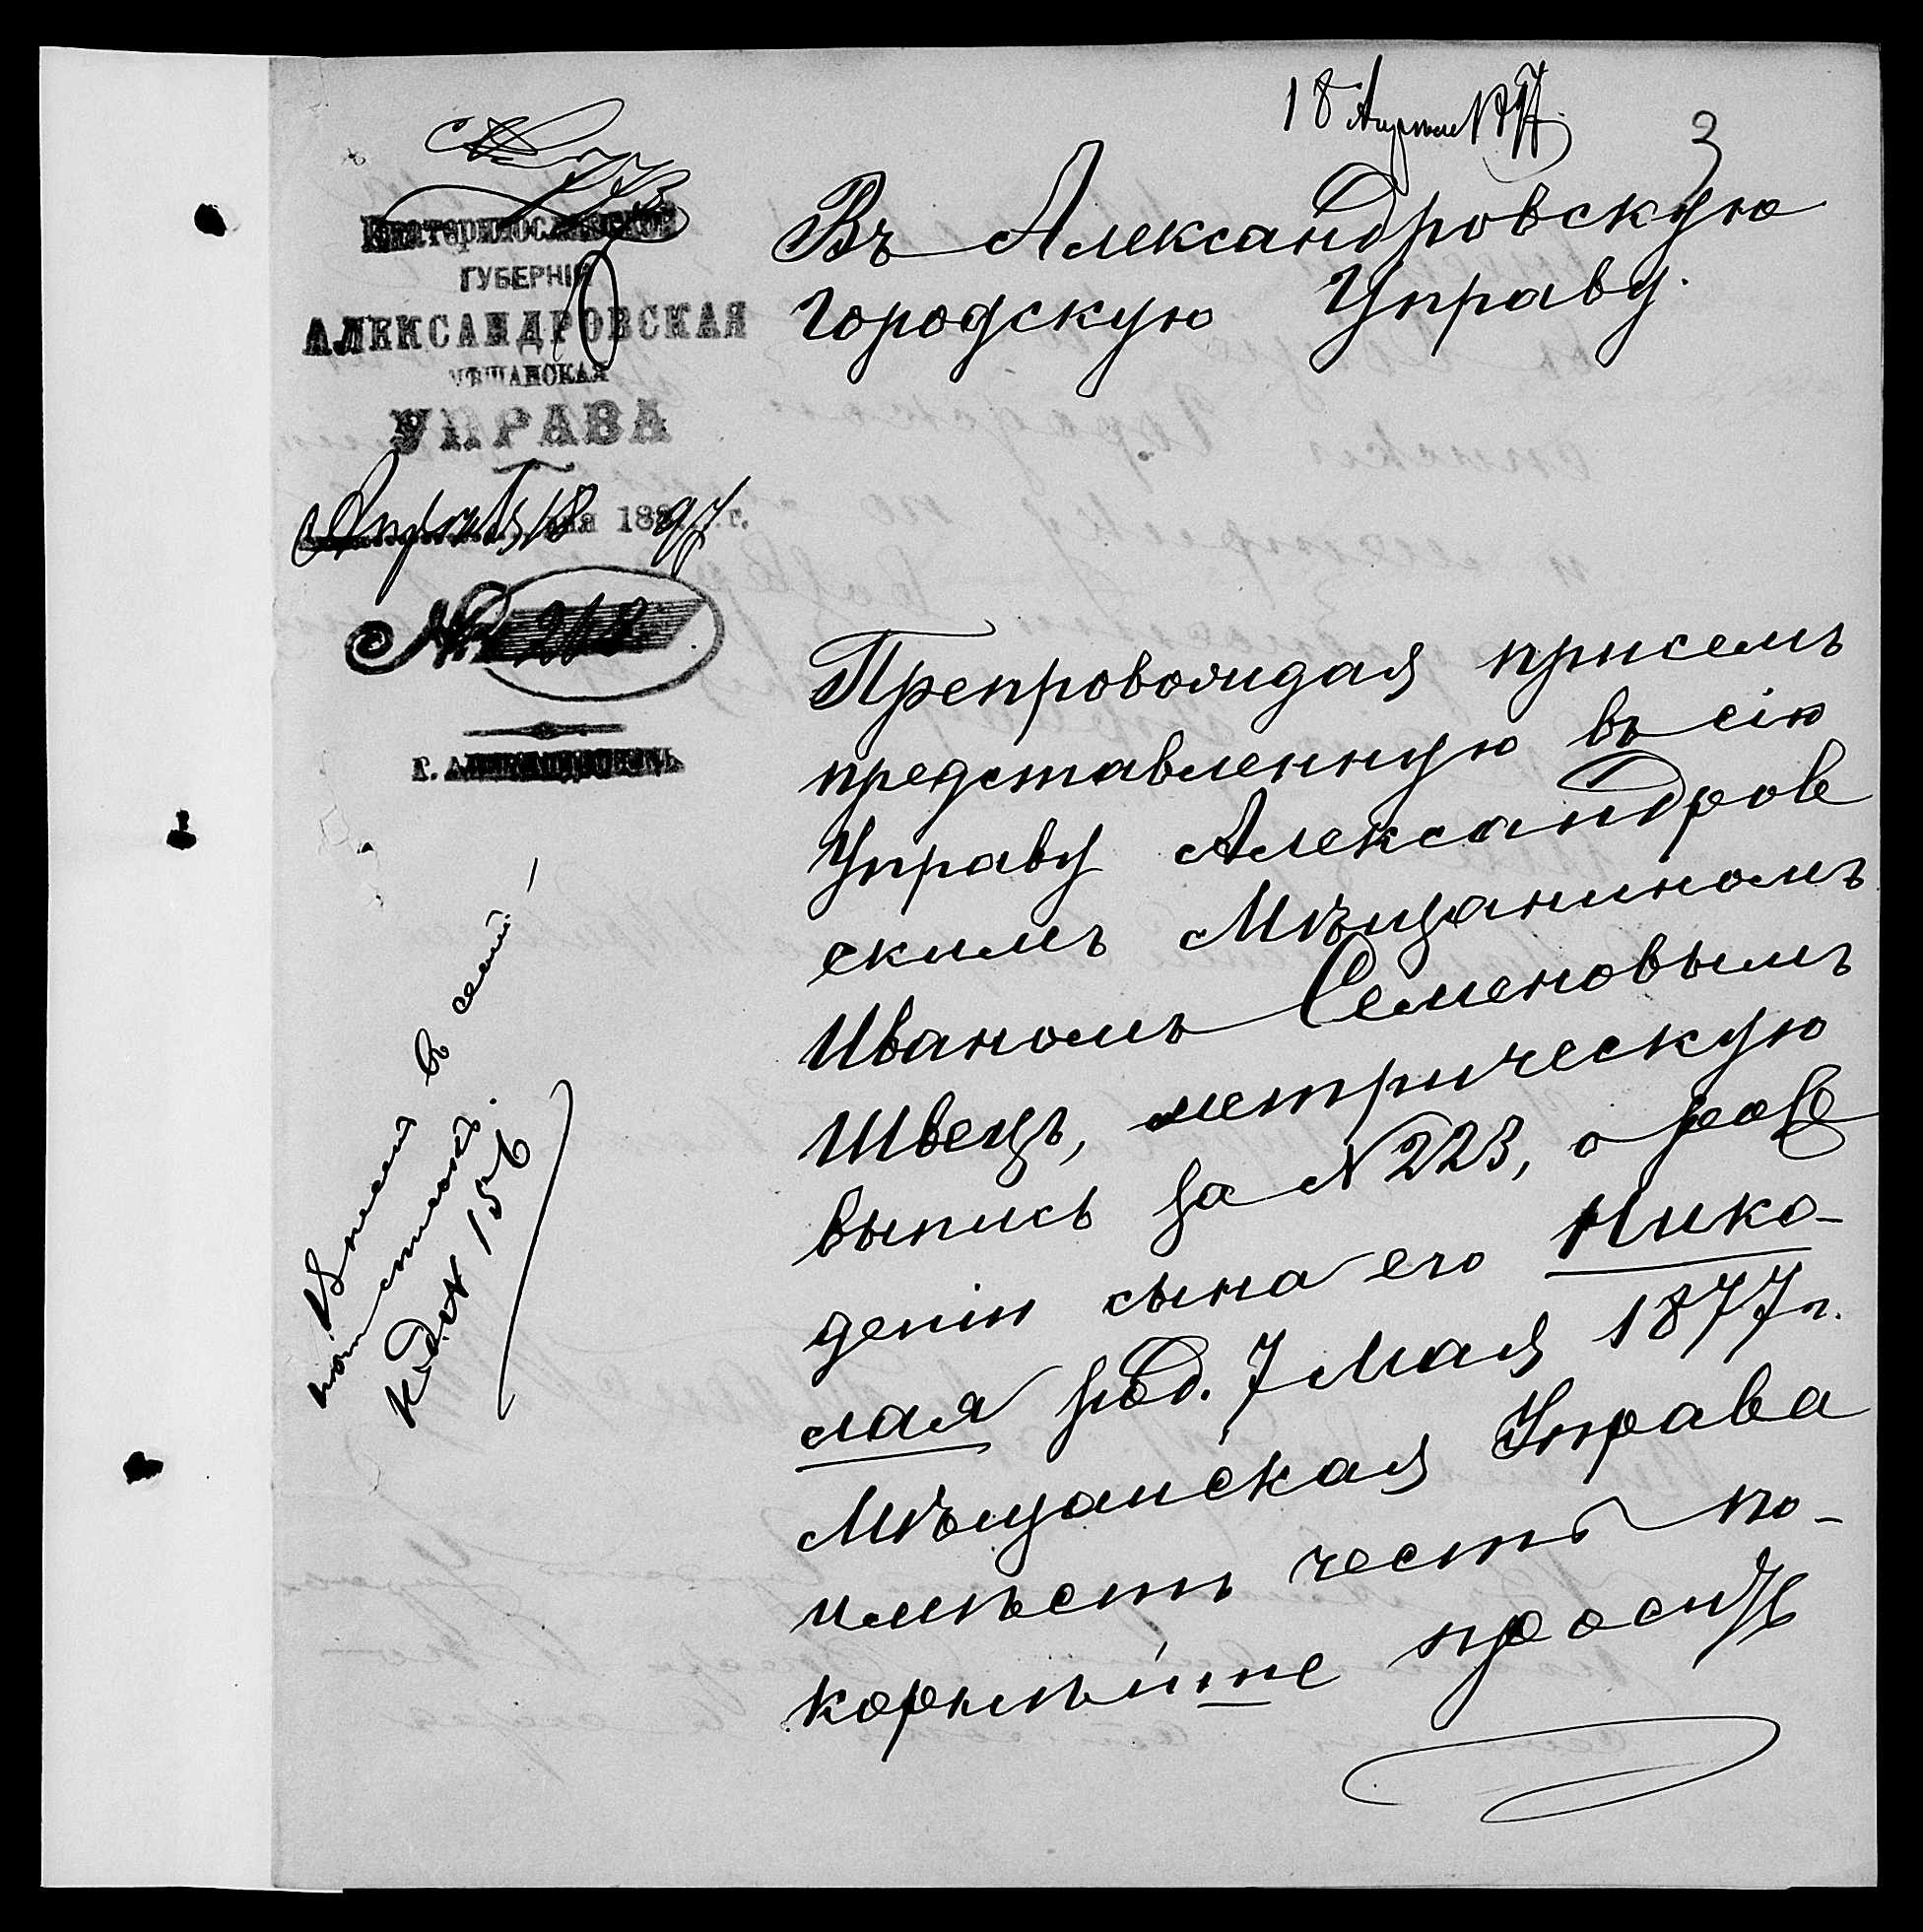 18 Апреля 1897
3
Екатеринославской
ГУБЕРНІИ
АЛЕКСАНДРОВСКАЯ
МѢЩАНСКАЯ
УПРАВА
Апрѣля 18 дня 1897 г.
№ 218
Г. АЛЕКСАНДРОВСКЪ
Въ Александровскую
Городскую Управу.
Препровождая присемъ
представленную въ сію
Управу Александров
скимъ Мѣщаниномъ
Иваномъ Семеновымъ
Швецъ, метрическую
выпись за № 223, о рож
деніи сына его Нико-
лая род. 7 Мая 1877 г.
Мѣщанская Управа
имѣетъ честь по-
корнѣйше просить
в семей